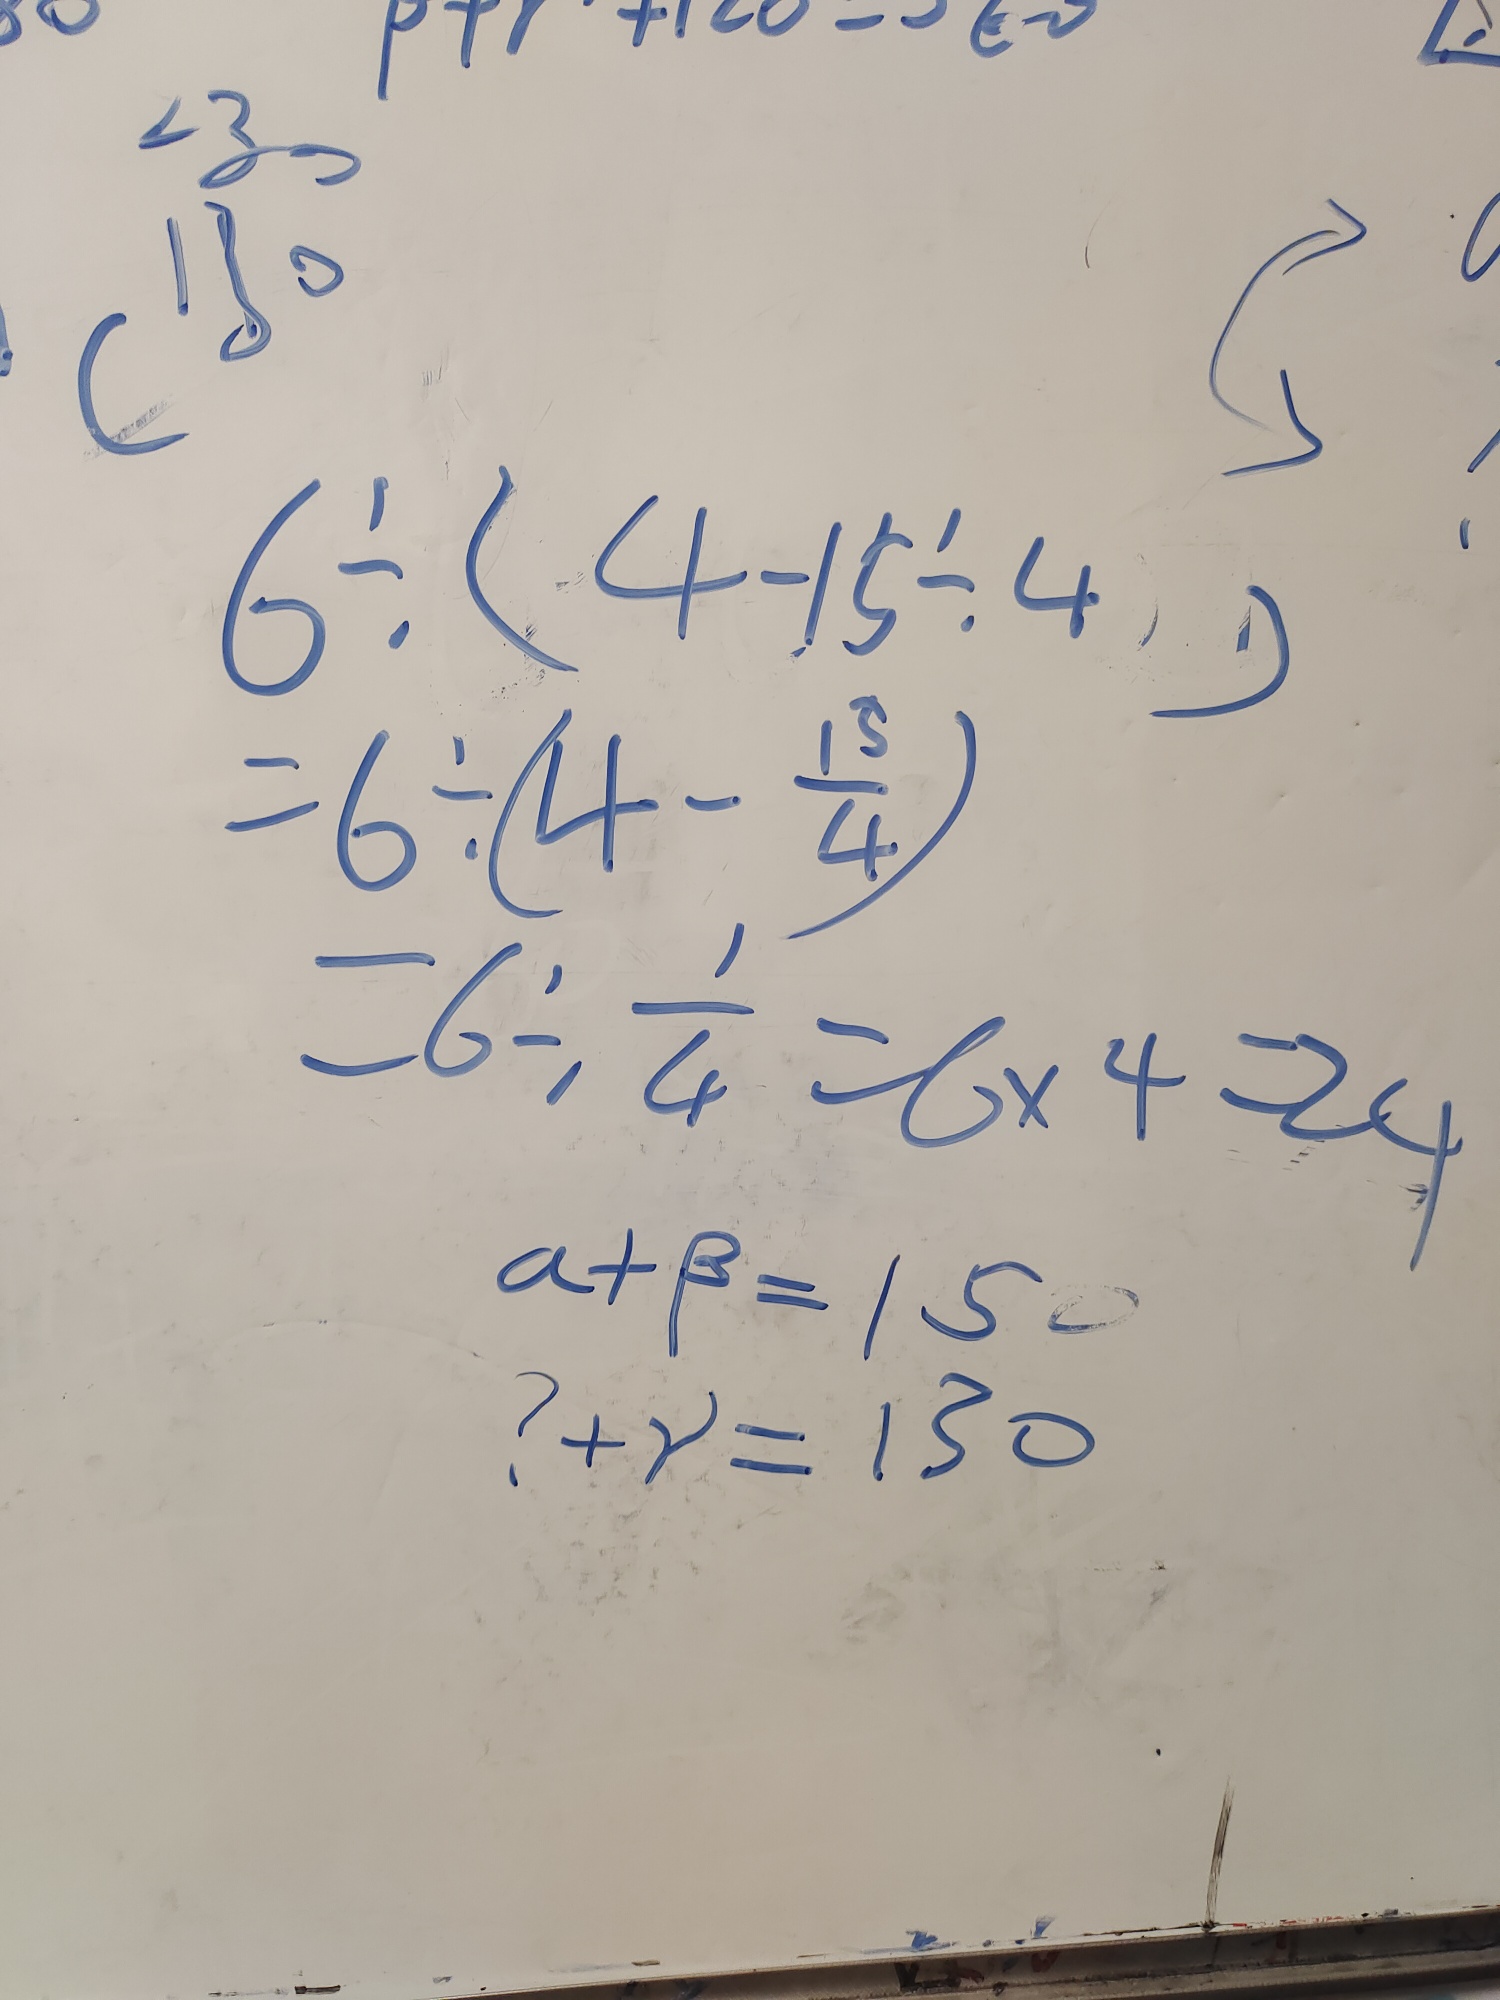 80
β+γ+120=360
230
130
6÷(4-15÷4)
=6÷(4-15/4)
=6÷1/4=6×4=24
α+β=150
?+γ=130